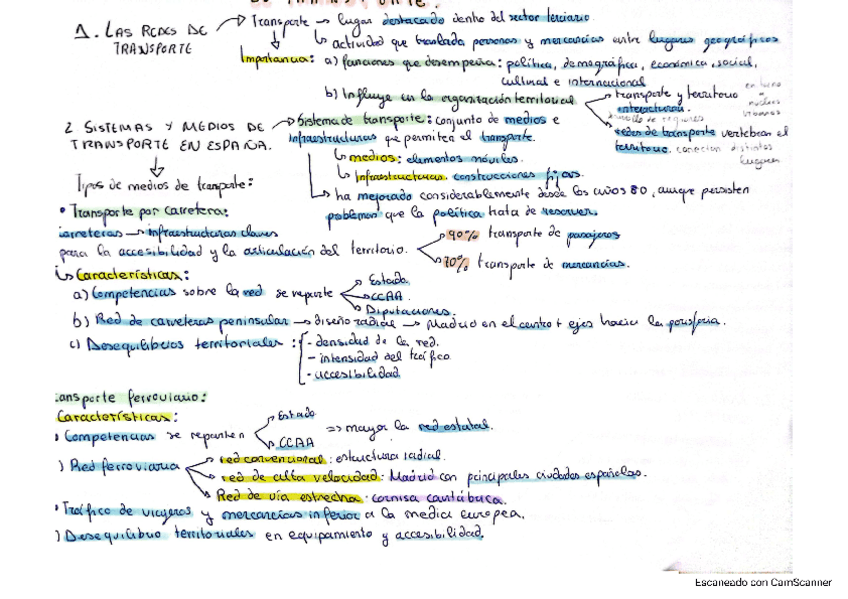 1. LAS REDES DE TRANSPORTE
Transporte → lugar destacado dentro del sector terciario.
actividad que traslada personas y mercancías entre lugares geográficos
Importancia: a) funciones que desempeña: política, demográfica, económica, social,
cultural e internacional
b) Influye en la organización territorial
transporte y territorio interactúan.
redes de transporte vertebran el territorio. conectan distintos lugares
2 SISTEMAS Y MEDIOS DE TRANSPORTE EN ESPAÑA.
Sistema de transporte: conjunto de medios e
infraestructuras que permiten el transporte.
medios: elementos móviles.
Infraestructuras. construcciones fijas.
ha mejorado considerablemente desde los años 80, aunque persisten
problemas que la política trata de resorver.
Tipos de medios de transporte:
• Transporte por carretera:
carreteras → infraestructuras claves
para la accesibilidad y la articulación del territorio.
90% transporte de pasajeros
70% transporte de mercancías.
Características:
a) Competencias sobre la red se reparte
Estado.
CCAA.
Diputaciones.
b) Red de carreteras peninsular → diseño radial → Madrid en el centro + ejes hacia la periferia.
c) Desequilibrios territoriales:
- densidad de la red.
- intensidad del tráfico
- accesibilidad
ansporte ferroviario:
Características:
) Competencias se reparten
Estado
CCAA
=> mayor la red estatal.
) Red ferroviaria
red convencional: estructura radial.
red de alta velocidad: Madrid con principales ciudades españolas.
Red de vía estrecha: cornisa cantábrica.
• Tráfico de viajeros y mercancías inferior a la media europea.
) Desequilibrio territoriales en equipamiento y accesibilidad.
Escaneado con CamScanner